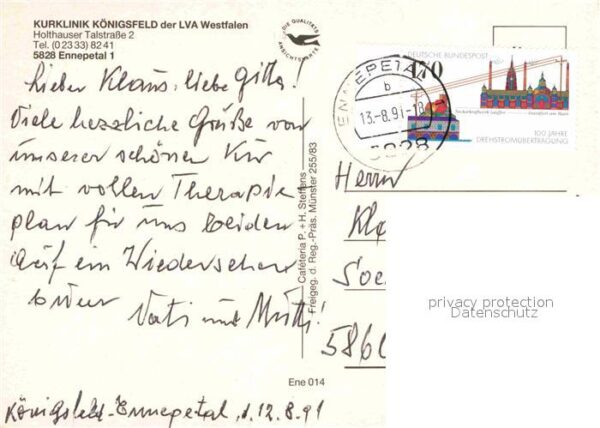 KURKLINIK KÖNIGSFELD der LVA Westfalen
Holthauser Talstraße 2
Tel. (0 23 33) 82 41
5828 Ennepetal 1
DIE QUALITÄTS
ANSICHTSKARTE
DEUTSCHE BUNDESPOST
170
Neckarkraftwerk Lauffen
Frankfurt am Main
100 JAHRE
DREHSTROMÜBERTRAGUNG
ENNEPETAL
b
13.-8.91-18
5828
Lieber Klaus, liebe Gitta!
Viele herzliche Grüße von
unserer schönen Kur
mit vollen Therapie
plan für uns beiden
Auf ein Wiedersehen
Vati und Mutti!
Königsfeld-Ennepetal, d. 12.8.91
Cafeteria P. + H. Steffens
Freigeg. d. Reg.-Präs. Münster 255/83
Ene 014
Herrn
Kla
Soe
5860
privacy protection
Datenschutz